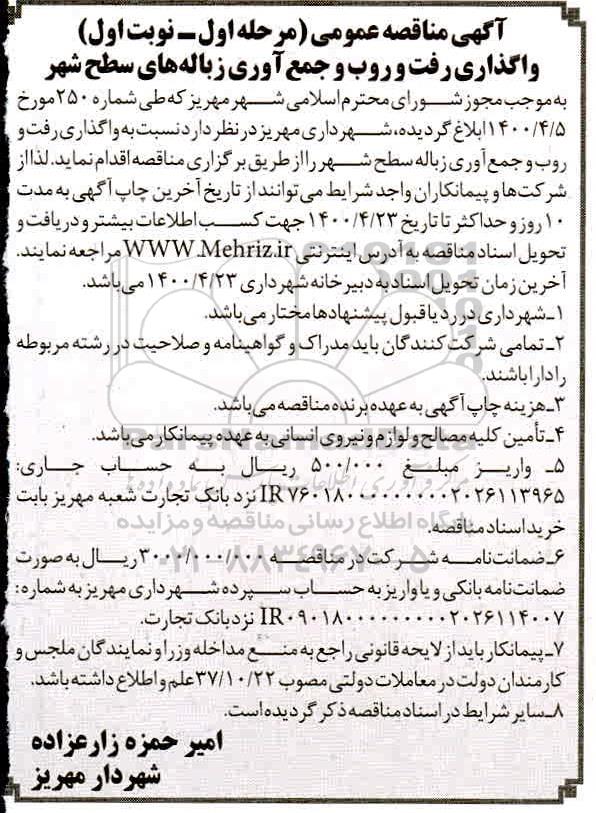 آگهی مناقصه عمومی (مرحله اول ـ نوبت اول)
واگذاری رفت و روب و جمع آوری زباله‌های سطح شهر
به موجب مجوز شورای محترم اسلامی شهر مهریز که طی شماره ۲۵۰ مورخ
۱۴۰۰/۴/۵ ابلاغ گردیده، شهرداری مهریز در نظر دارد نسبت به واگذاری رفت و
روب و جمع آوری زباله سطح شهر را از طریق برگزاری مناقصه اقدام نماید. لذا از
شرکت‌ها و پیمانکاران واجد شرایط می‌توانند از تاریخ آخرین چاپ آگهی به مدت
۱۰ روز و حداکثر تا تاریخ ۱۴۰۰/۴/۲۳ جهت کسب اطلاعات بیشتر و دریافت و
تحویل اسناد مناقصه به آدرس اینترنتی WWW.Mehriz.ir مراجعه نمایند.
آخرین زمان تحویل اسناد به دبیرخانه شهرداری ۱۴۰۰/۴/۲۳ می‌باشد.
۱ـ شهرداری در رد یا قبول پیشنهادها مختار می‌باشد.
۲ـ تمامی شرکت کنندگان باید مدراک و گواهینامه و صلاحیت در رشته مربوطه
را دارا باشند.
۳ـ هزینه چاپ آگهی به عهده برنده مناقصه می‌باشد.
۴ـ تأمین کلیه مصالح و لوازم و نیروی انسانی به عهده پیمانکار می‌باشد.
ParsNamadData
۵ـ واریز مبلغ ۵۰۰/۰۰۰ ریال به حساب جاری:
IR ۷۶۰۱۸۰۰۰۰۰۰۰۰۰۰۲۰۲۶۱۱۳۹۶۵ نزد بانک تجارت شعبه مهریز بابت
خرید اسناد مناقصه.
پایگاه اطلاع رسانی مناقصه و مزایده
۶ـ ضمانت‌نامه شرکت در مناقصه ۳۰۰۰/۰۰۰/۰۰۰ ریال به صورت
۰۲۱-۸۸۳۴۹۶۷۰-۵
ضمانت‌نامه بانکی و یا واریز به حساب سپرده شهرداری مهریز به شماره:
IR ۰۹۰۱۸۰۰۰۰۰۰۰۰۰۰۲۰۲۶۱۱۴۰۰۷ نزد بانک تجارت.
۷ـ پیمانکار باید از لایحه قانونی راجع به منع مداخله وزرا و نمایندگان ملجس و
کارمندان دولت در معاملات دولتی مصوب ۳۷/۱۰/۲۲ علم و اطلاع داشته باشد.
۸ـ سایر شرایط در اسناد مناقصه ذکر گردیده است.
امیر حمزه زارعزاده
شهردار مهریز